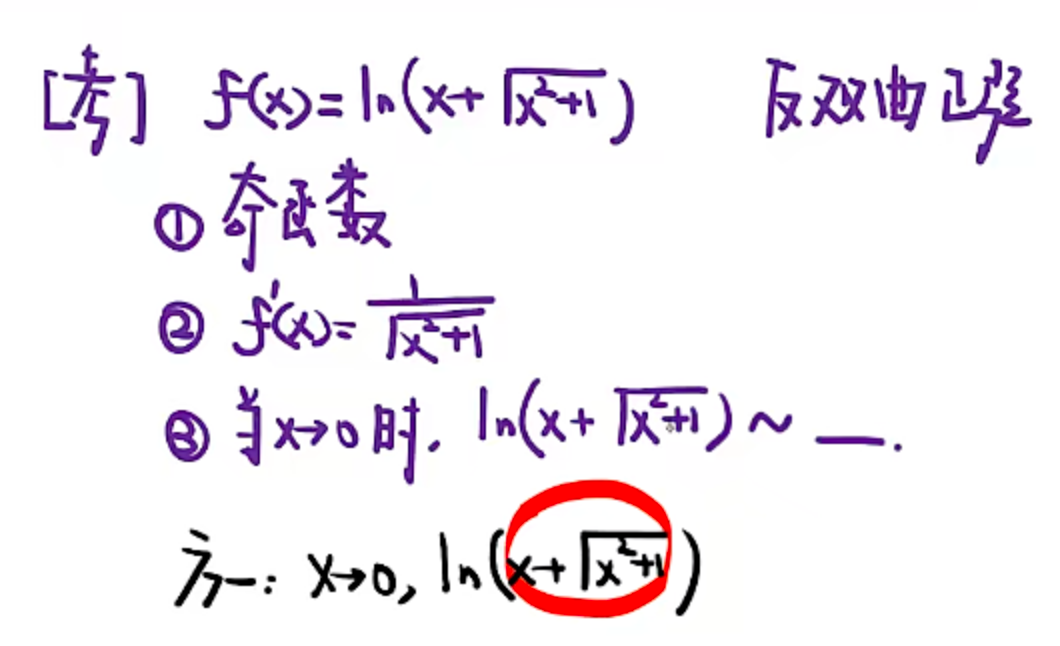 [考] f(x)=ln(x+√(x²+1)) 反双曲正弦
① 奇函数
② f'(x)=1/√(x²+1)
③ 当x→0时, ln(x+√(x²+1))~__.
方一: x→0, ln(x+√(x²+1))